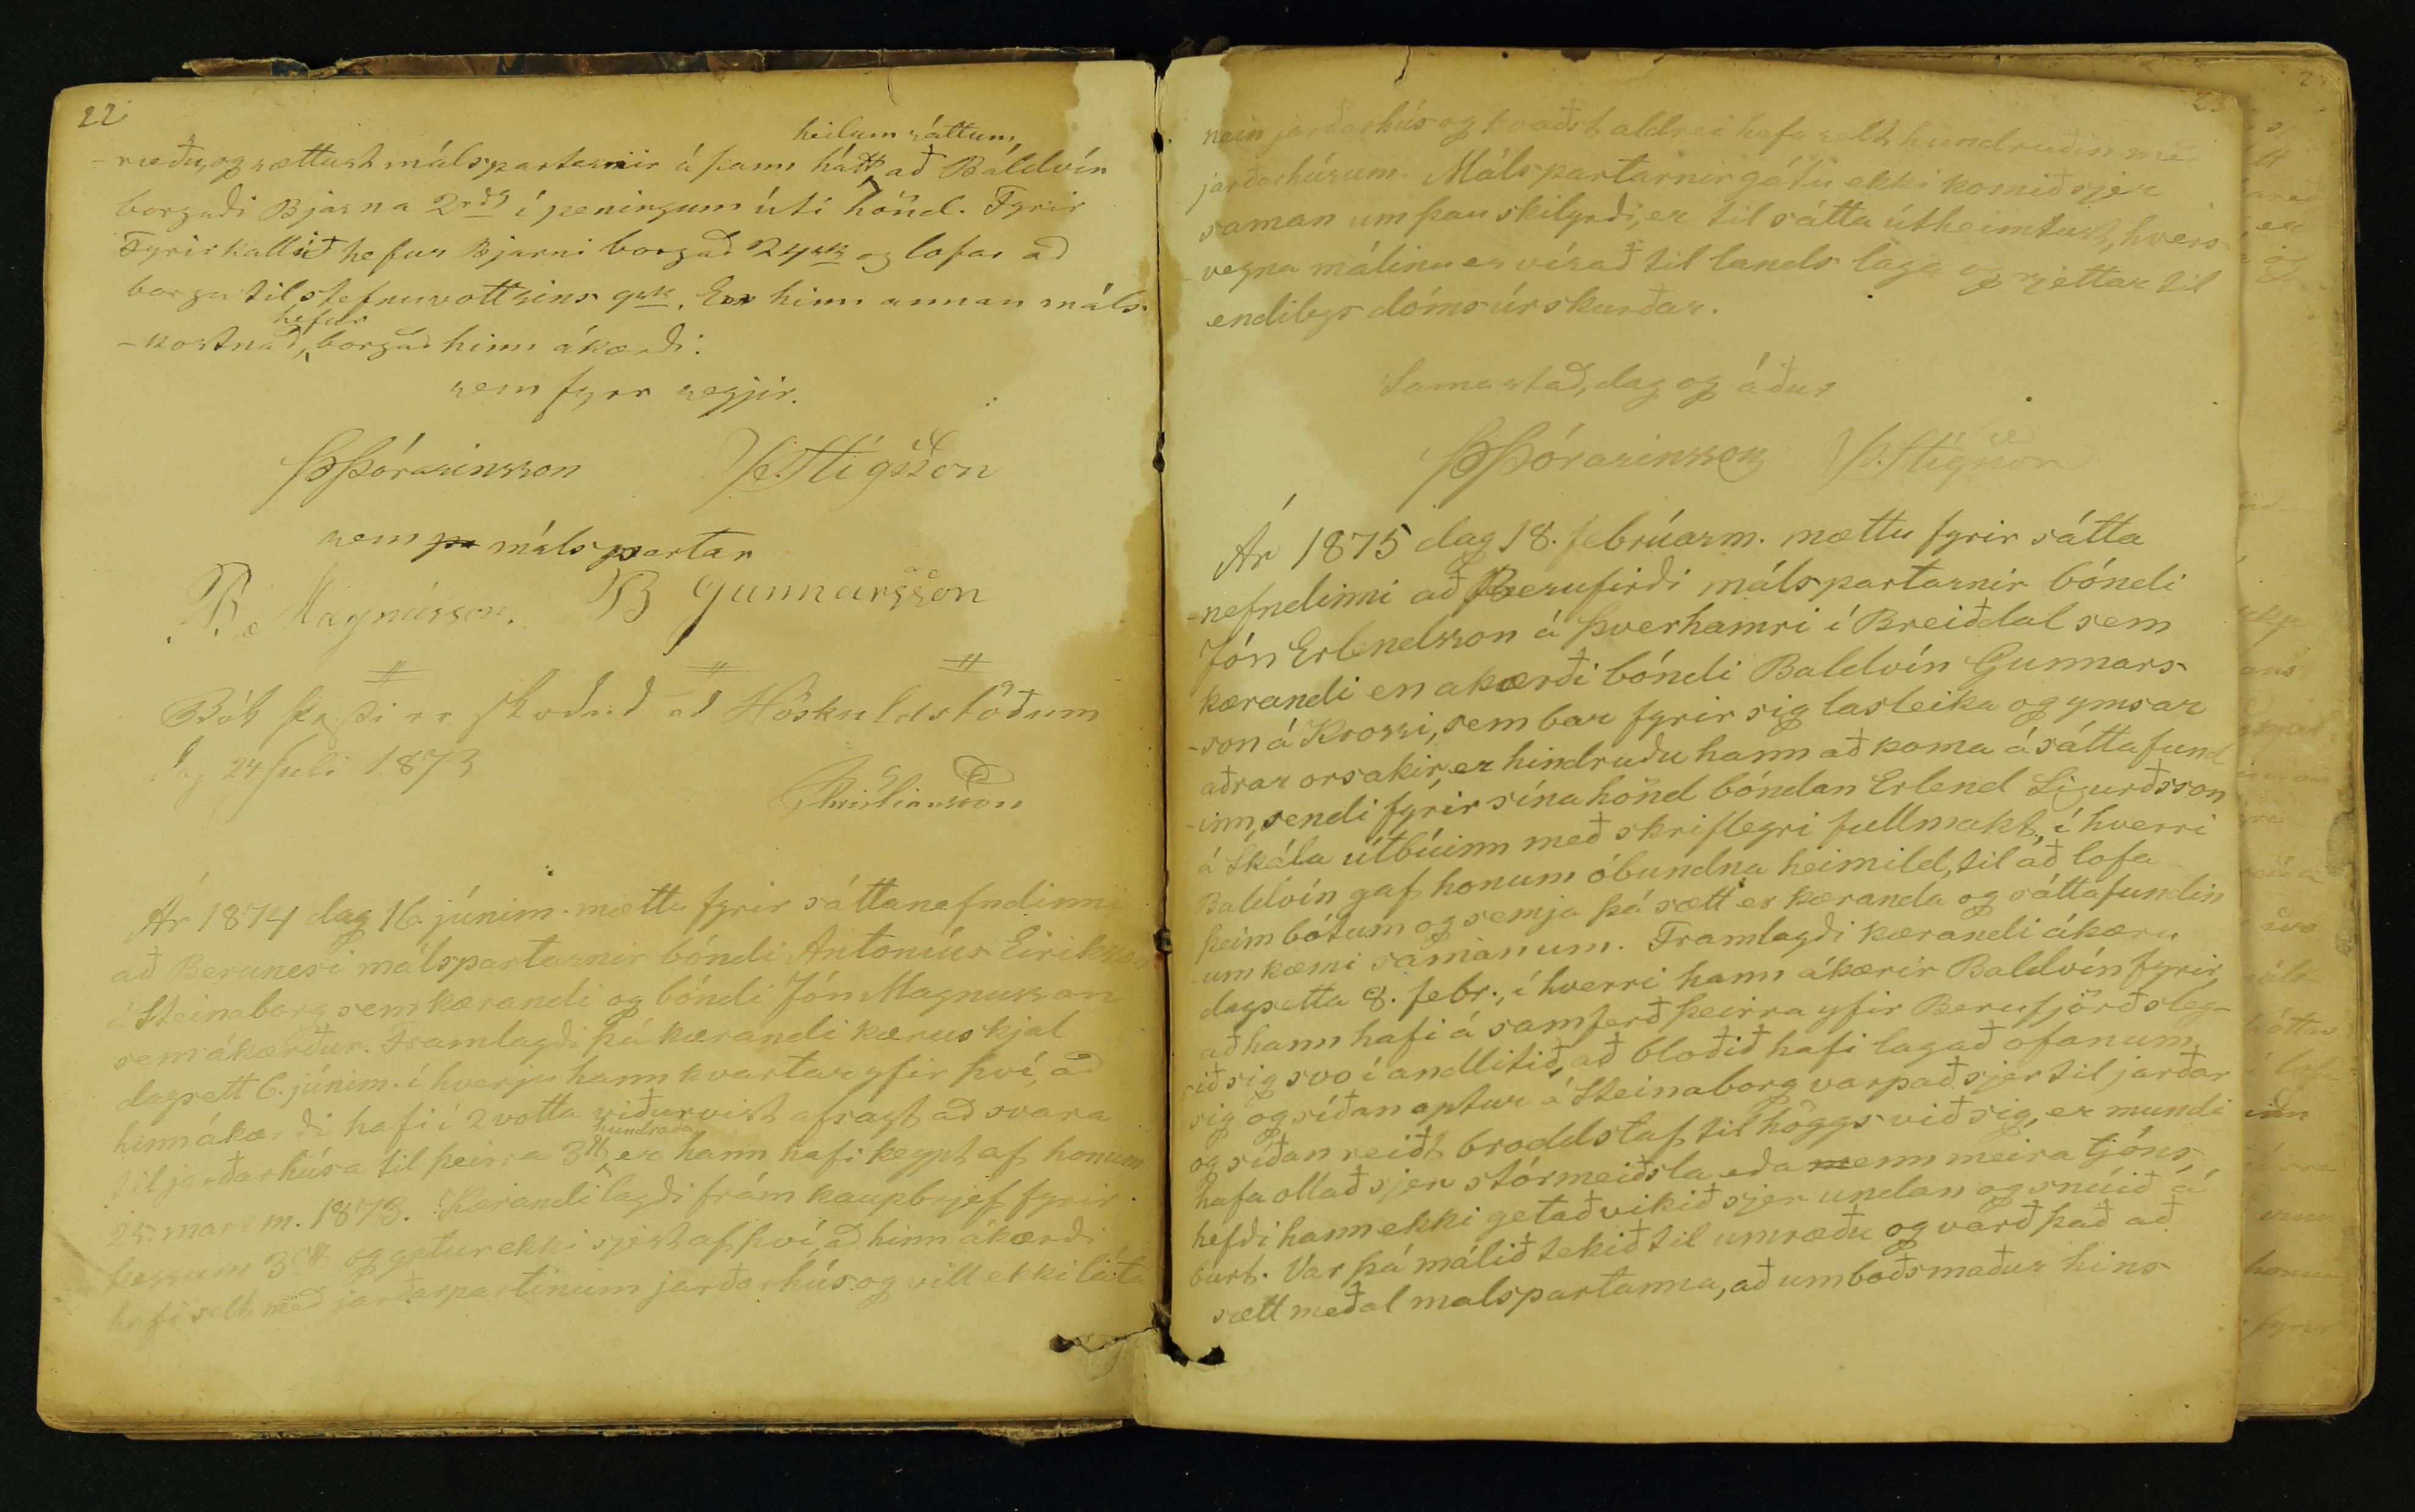 22
heilum sáttum,
-ræðu, og sættust málspartarnir á þann hátt, að Baldvín
borgaði Bjarna 2rdg í peningum útí hönd. Fyrir
Fyrirkallið hefur Bjarni borgað 24sk og lofar að
borga til stefnuvottsins 9sk. En hinn annan máls-
hefur
-kostnað, borgað hinn ákærði:
sem fyrr segjir.
Þ Þórarinsson Þ. Stígsson
sem pa málspartar
B. Magnússon. B Gunnarsson
Bók þessi er skoðuð að Höskuldstöðum
Dag 24 Juli 1873
Ár 1874 dag 16. júním. mættu fyrir sáttanefndinni
að Berunesi málspartarnir bóndi Antoníus Eiriksson
á Steinaborg sem kærandi og bóndi Jón Magnusson
sem ákærður. Framlagði þá kærandi kæruskjal
dagsett 6. júním. í hverju hann kvartar yfir því, að
hinn ákærði hafi í 2 votta viðurvist afsagt að svara
hundraða
til jarðarhúsa til þeirra 3 er hann hafi keypt af honum
25. marsm. 1873. Kærandi lagði fram kaupbrjef fyrir
þessum 3 og getur ekki sjest af því, að hinn ákærði
hafi selt með jarðarpartinum jarðarhús og vill ekki láta
23
nein jarðarhús og kvaðst aldrei hafa selt hundruðin með
jarðarhúsum. Málspartarnir gátu ekki komið sjer
saman um þau skilyrði, er til sátta útheimtust, hvers-
-vegna málinu er vísað til lands laga og rjettar til
endilegs dómsúrskurðar.
Samastað, dag og áður
Þ Þórarinsson Þ. Stígsson
Ár 1875 dag 18. febrúarm. mættu fyrir sátta
-nefndinni að Berufirði málspartarnir bóndi
Jón Erlendsson á Þverhamri í Breiðdal sem
kærandi en akærði bóndi Baldvín Gunnars-
-son á Krossi, sem bar fyrir sig lasleika og ymsar
aðrar orsakir, er hindruðu hann að koma á sáttafund
-inn, sendi fyrir sína hönd bóndan Erlend Sigurðsson
á Skála útbúinn með skriflegri fullmakt, í hverri
Baldvín gaf honum óbundna heimild, til að lofa
þeim bótum og semja þá sætt er kæranda og sáttafundin
-um kæmi saman um. Framlagði kærandi ákæru
dagsetta 8. febr., í hverri hann ákærir Baldvín fyrir,
að hann hafi á samferð þeirra yfir Berufjörð sleg-
ið sig svo í andlitið, að bloðið hafi lagað ofanum
sig og síðan aptur á Steinaborg varpað sjer til jarðar
og síðan reiðt broddstaf til höggs við sig, er mundi
hafa ollað sjer stórmeiðsla eða menn meira tjóns,
hefði hann ekki getað vikið sjer undan og snúið á
burt. Var þá málið tekið til umræðu og varð það að
sætt meðal malspartanna, að umboðsmaður hins